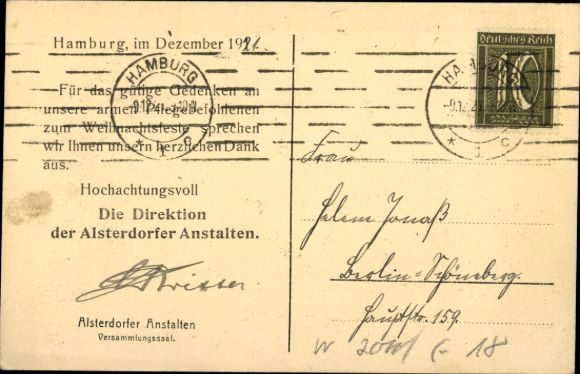 Hamburg, im Dezember 1921.
Für das gütige Gedenken an
unsere armen Pflegebefohlenen
zum Weihnachtsfeste sprechen
wir Ihnen unsern herzlichen Dank
aus.
Hochachtungsvoll
Die Direktion
der Alsterdorfer Anstalten.
Alsterdorfer Anstalten
Versammlungssaal.
HAMBURG
1 C
Deutsches Reich
10
HAMBURG
* 1 C
Frau
Helene Jonaß
Berlin-Schöneberg.
Hauptstr. 159.
18